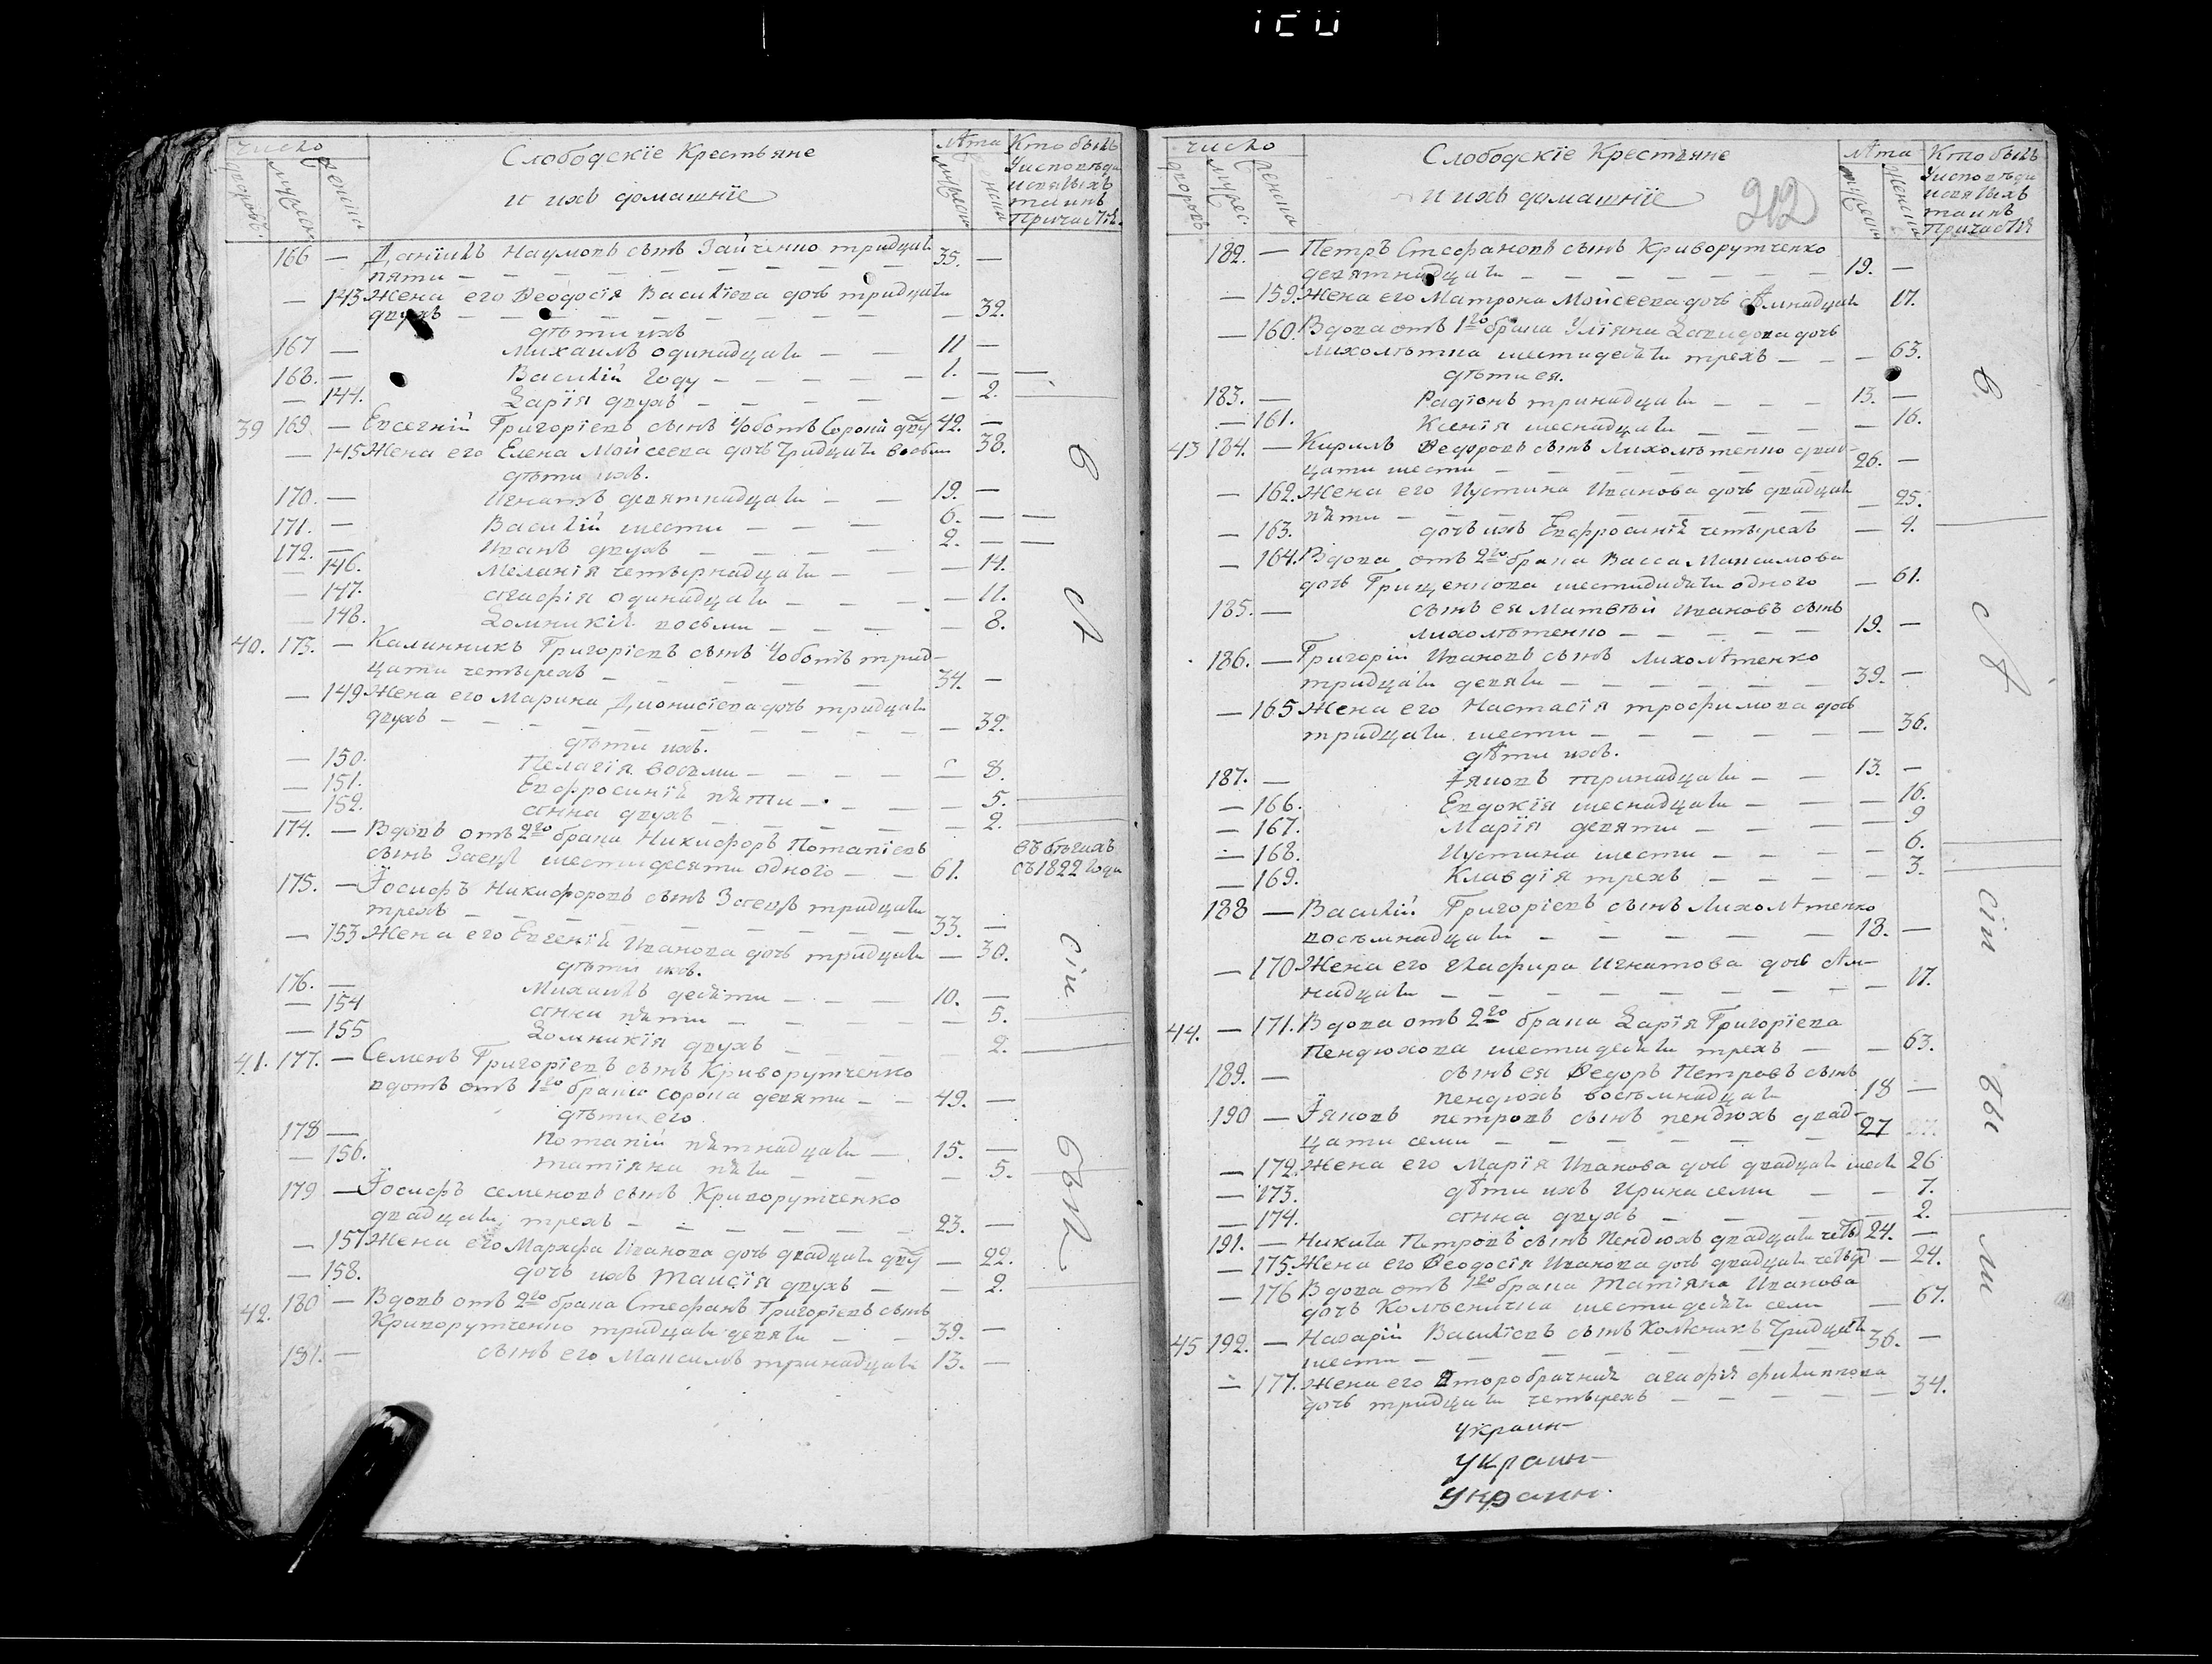 число
Слободскіе Крестьяне
и ихъ домашніе
Лѣта
Кто былъ
у исповѣди
и святыхъ
таинъ
причастія
дворовъ. мужеск. женска
мужеска женска
166 — Даніилъ Наумовъ сынъ Зайченко тридцати 35. —
пяти — — — —
— 143 Жена его Ѳеодосія Василіева дочь тридцати
двухъ — — — — 32.
дѣти ихъ
167 — Михаилъ одинадцати — — 11 —
168. — Василій году — — — — 1. — —
— 144. Дарія двухъ — — — — — 2.
39 169. — Евсегній Григоріевъ сынъ Чоботъ сорокъ двух 42. —
— 145 Жена его Елена Мойсеева дочь тридцати восьми 38.
дѣти ихъ.
170. — Игнатъ девятнадцати — — 19. —
171. — Василій шести — — — 6. — —
172. — Иванъ двухъ — — — — 2. — —
— 146. Меланія четырнадцати — — — 14.
— 147. Агафія одинадцати — — — — 11.
— 148. Домникія восьми — — — — 8.
40. 173. — Калинникъ Григоріевъ сынъ Чоботъ трид-
цати четырехъ — — — — 34. —
— 149 Жена его Марина Діонисіева дочь тридцати
двухъ — — — — 32.
дѣти ихъ.
— 150. Пелагія восьми — — — — — 8.
— 151. Евфросинія пяти — — — — 5.
— 152. Анна двухъ — — — — — 2.
174. — Вдовъ отъ 2го брака Никифоръ Потапіевъ
сынъ Заецъ шестидесяти одного — — 61.
въ бѣгахъ
съ 1822 года
175. — Іосифъ Никифоровъ сынъ Заецъ тридцати
трехъ — — — — 33. —
— 153 Жена его Евгенія Иванова дочь тридцати — 30.
дѣти ихъ.
176. — Михаилъ десяти — — — 10. —
— 154 Анна пяти — — — — — 5.
— 155 Домникія двухъ — — — 2.
41. 177. — Семенъ Григоріевъ сынъ Криворутченко
вдовъ отъ 1го брака сорока девяти — — 49. —
дѣти его
178 — Потапій пятнадцати — 15. —
— 156. Татіяна пяти — — — 5.
179 — Іосифъ Семеновъ сынъ Криворутченко
двадцати трехъ — — — — 23. —
— 157 Жена его Марфа Иванова дочь двадцати двух — 22.
— 158. дочь ихъ Таисія двухъ — — 2.
42. 180 — Вдовъ отъ 2го брака Стефанъ Григоріевъ сынъ
Криворутченко тридцати девяти — — 39. —
181. — сынъ его Максимъ тринадцати 13. —
число
Слободскіе Крестьяне
и ихъ домашніе
212
Лѣта
Кто былъ
у исповѣди
и святыхъ
таинъ
причастія
дворовъ мужес. женска
мужеска женска
182. — Петръ Стефановъ сынъ Криворутченко
девятнадцати — — — — 19. —
— 159. Жена его Матрона Мойсеева дочь сѣмнадцати 17.
— 160. Вдова отъ 1го брака Уліяна Давидова дочь
Лихолѣтна шестидесяти трехъ — — — 63.
дѣти ея.
183. — Радіонъ тринадцати — — — 13. —
— 161. Ксенія шеснадцати — — — — 16.
43 184. — Кирилъ Ѳедоровъ сынъ Лихолѣтенко двад-
цати шести — — — — 26. —
— 162. Жена его Иустина Иванова дочь двадцати
пяти — — — — 25.
— 163. дочь ихъ Евфросинія четырехъ — 4.
— 164. Вдова отъ 2го брака Васса Максимова
дочь Гриценкова шестидесяти одного — 61.
185. — сынъ ея Матвѣй Ивановъ сынъ
Лихолѣтенко — — — — — 19. —
186. — Григорій Ивановъ сынъ Лихолѣтенко
тридцати девяти — — — — 39. —
— 165 Жена его Настасія Трофимова дочь
тридцати шести — — — — 36.
дѣти ихъ.
187. — Іяковъ тринадцати — — 13. —
— 166. Евдокія шеснадцати — — — 16.
— 167. Марія девяти — — — — 9
— 168. Иустина шести — — — — 6.
— 169. Клавдія трехъ — — — — 3.
188 — Василій Григоріевъ сынъ Лихолѣтенко
восемнадцати — — — — 18. —
— 170 Жена его Гликафира Игнатова дочь сѣм-
надцати — — — — 17.
44. — 171. Вдова отъ 2го брака Дарія Григоріева
Пендюхова шестидесяти трехъ — — 63.
189. — сынъ ея Ѳедоръ Петровъ сынъ
Пендюхъ восемнадцати 18 —
190 — Іяковъ Петровъ сынъ Пендюхъ двад-
цати семи — — — — 27
— 172. Жена его Марія Иванова дочь двадцати шести 26
— 173. дѣти ихъ Ирина семи — — 7.
— 174. Анна двухъ — — — — 2.
191. — Никита Петровъ сынъ Пендюхъ двадцати четыр 24. —
— 175. Жена его Ѳеодосія Иванова дочь двадцати четыр — 24.
— 176 Вдова отъ 1го брака Татіяна Иванова
дочь Колѣснична шестидесяти семи — 67.
45 192. — Назарій Василіевъ сынъ Колѣсникъ тридцати
шести — — — — 36. —
— 177. Жена его второбрачная Агафія Филиппова
дочь тридцати четырехъ — — — 34.
украин
украин
украин.